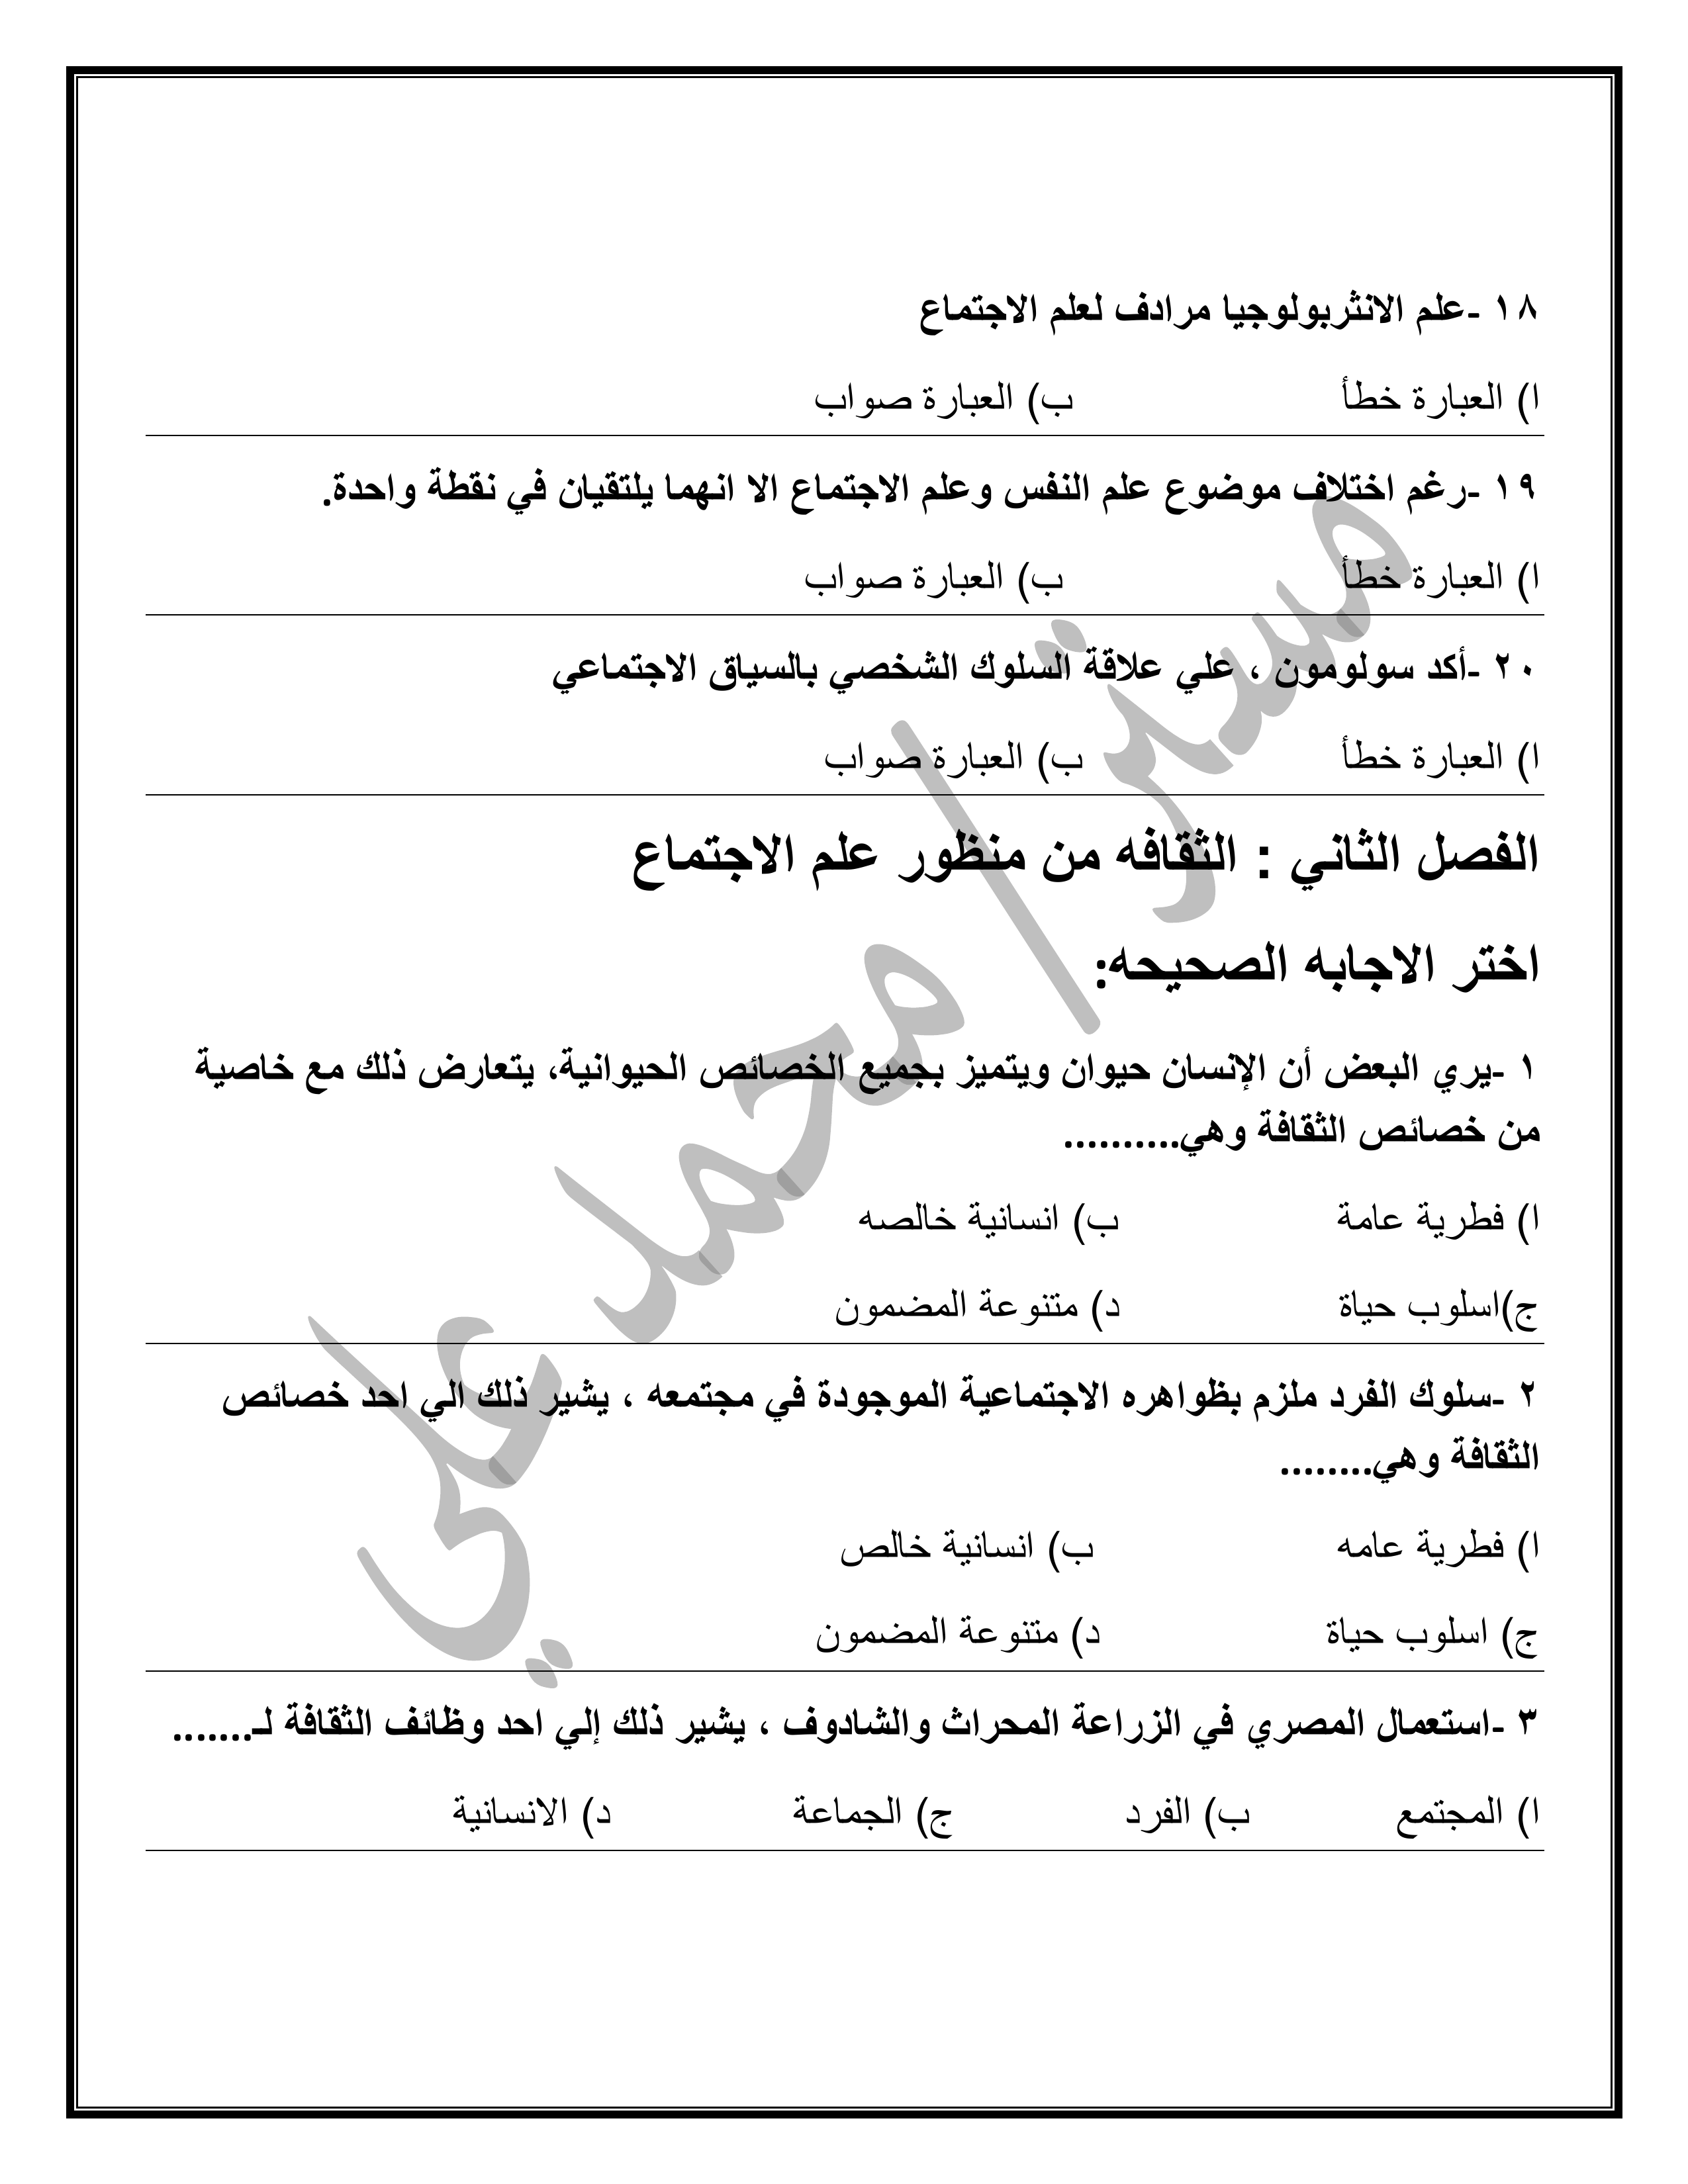 ١٨ -علم الانثربولوجيا مرادف لعلم الاجتماع
ا) العبارة خطأ ب) العبارة صواب
١٩ -رغم اختلاف موضوع علم النفس وعلم الاجتماع الا انهما يلتقيان في نقطة واحدة.
ا) العبارة خطأ ب) العبارة صواب
٢٠ -أكد سولومون ، علي علاقة السلوك الشخصي بالسياق الاجتماعي
ا) العبارة خطأ ب) العبارة صواب
الفصل الثاني : الثقافه من منظور علم الاجتماع
اختر الاجابه الصحيحه:
١ -يري البعض أن الإنسان حيوان ويتميز بجميع الخصائص الحيوانية، يتعارض ذلك مع خاصية
من خصائص الثقافة وهي..........
ا) فطرية عامة ب) انسانية خالصه
ج)اسلوب حياة د) متنوعة المضمون
٢ -سلوك الفرد ملزم بظواهره الاجتماعية الموجودة في مجتمعه ، يشير ذلك الي احد خصائص
الثقافة وهي........
ا) فطرية عامه ب) انسانية خالص
ج) اسلوب حياة د) متنوعة المضمون
٣ -استعمال المصري في الزراعة المحراث والشادوف ، يشير ذلك إلي احد وظائف الثقافة لـ.......
ا) المجتمع ب) الفرد ج) الجماعة د) الانسانية
مستر/ محمد علي